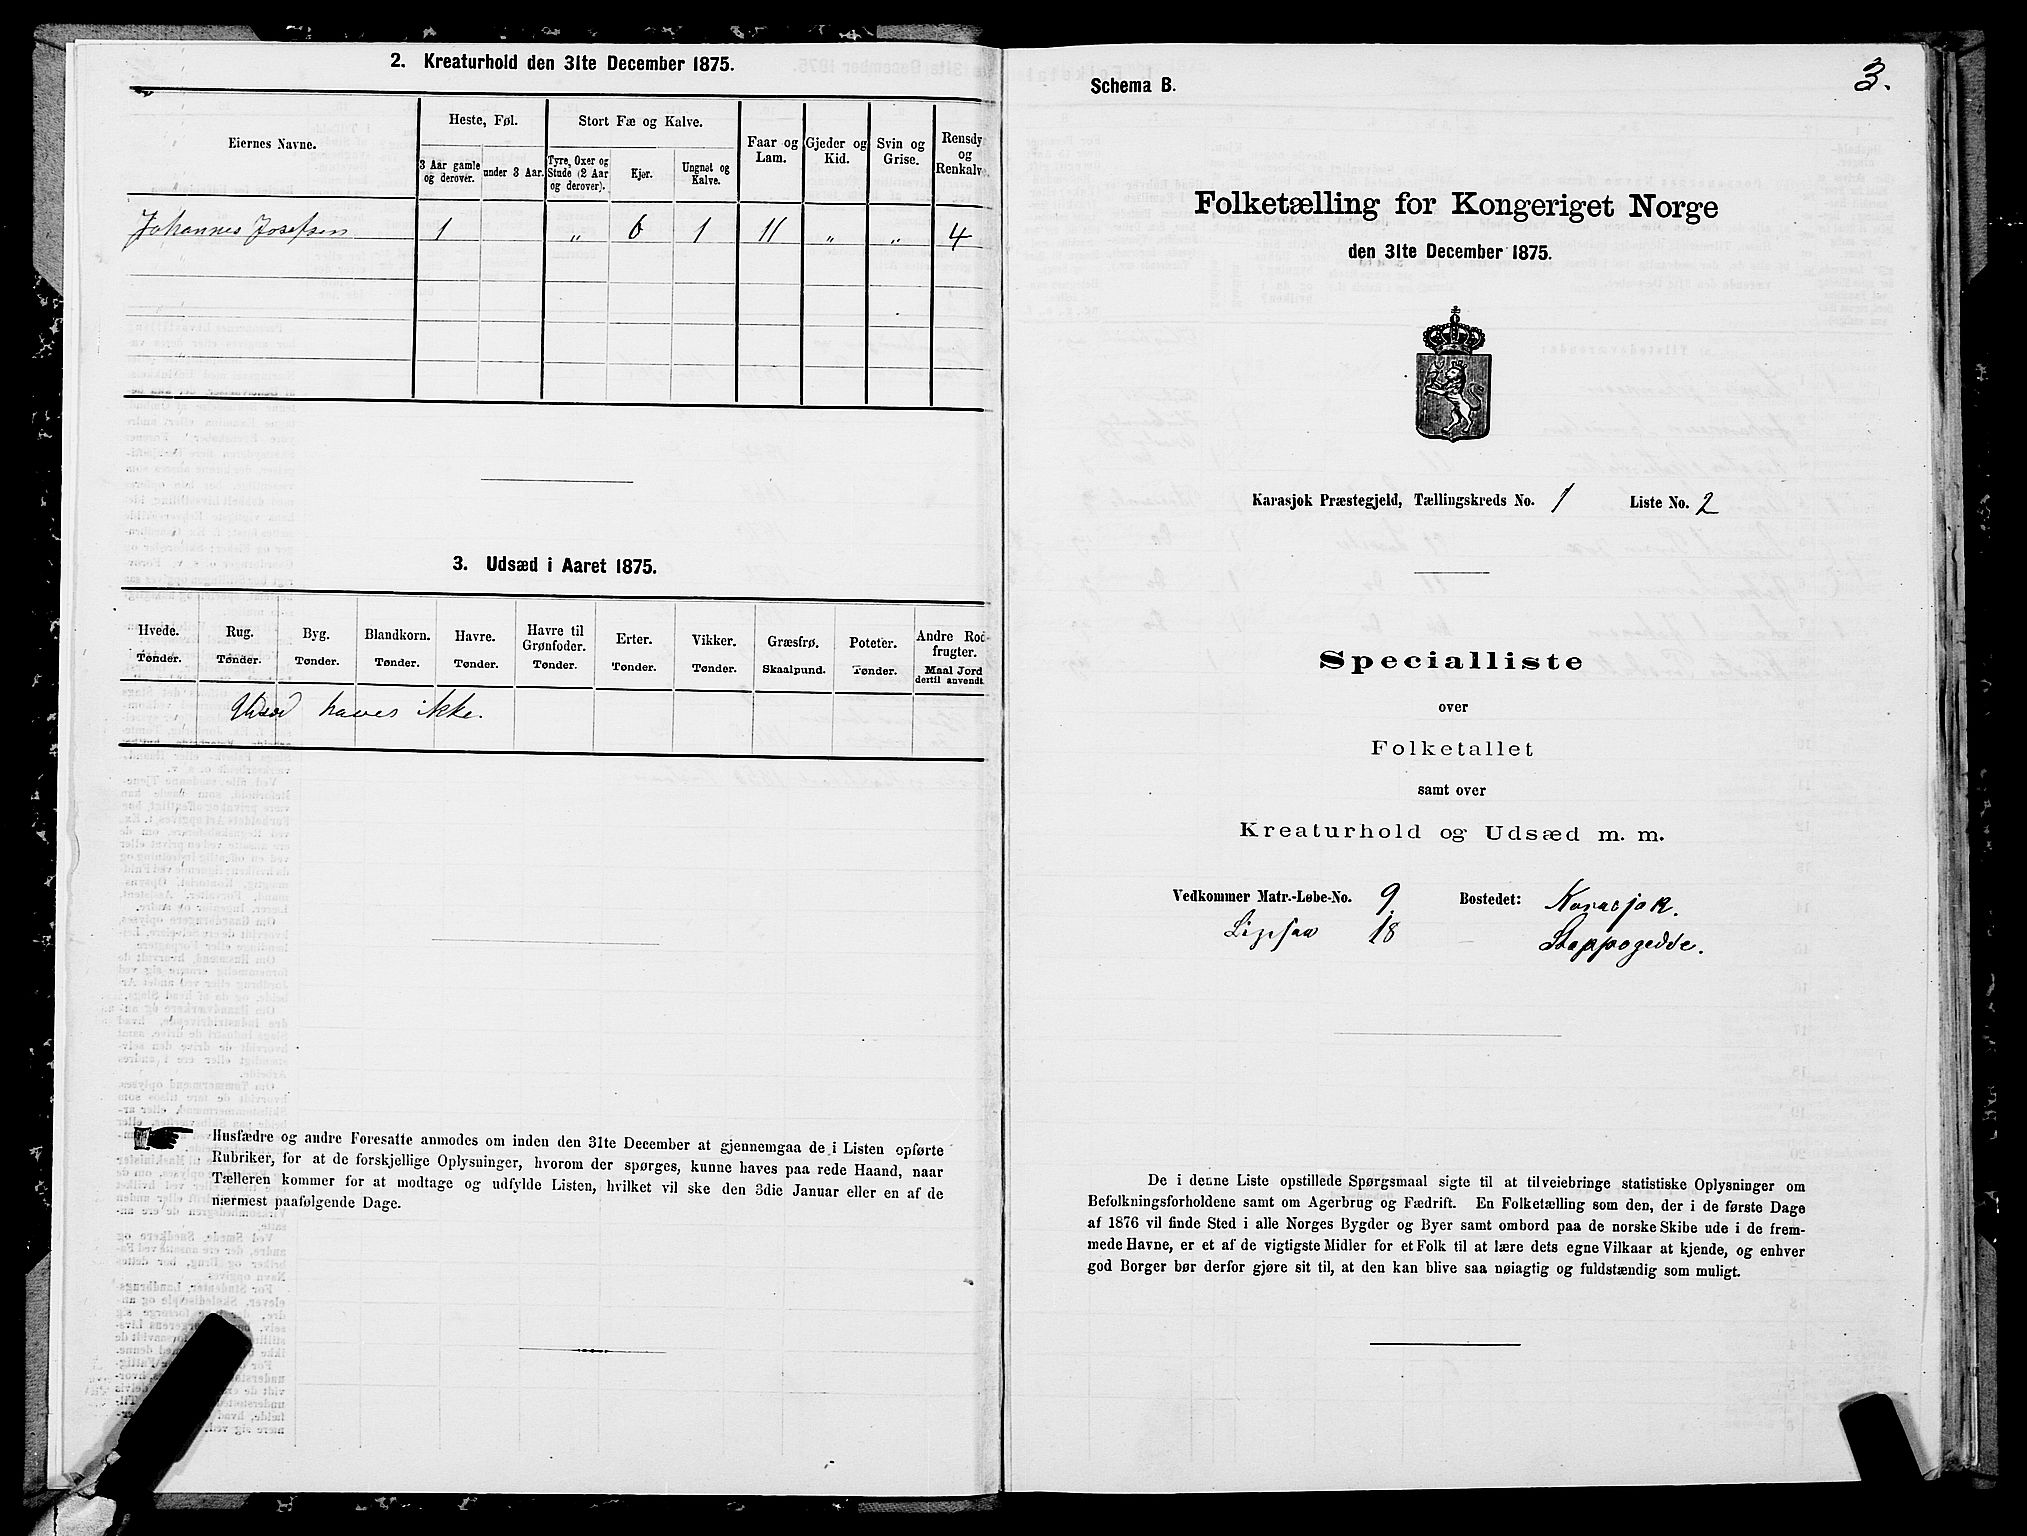 2. Kreaturhold den 31te December 1875.
Eiernes Navne.
Heste, Føl.
3 Aar gamle og derover.
under 3 Aar.
Stort Fæ og Kalve.
Tyre, Oxer og Stude (2 Aar og derover).
Kjør.
Ungnøt og Kalve.
Faar og Lam.
Gjeder og Kid.
Svin og Grise.
Rensdy og Renkalve
Johannes Josefsen 1 " 6 1 11 " " 4
3. Udsæd i Aaret 1875.
Hvede. Rug. Byg. Blandkorn. Havre. Havre til Grønfoder. Erter. Vikker. Græsfrø. Poteter. Andre Rod-frugter.
Tønder. Tønder. Tønder. Tønder. Tønder. Tønder. Tønder. Tønder. Skaalpund. Tønder. Maal Jord dertil anvendt.
Udsæd haves ikke.
Husfædre og andre Foresatte anmodes om inden den 31te December at gjennemgaa de i Listen opførte
Rubriker, for at de forskjellige Oplysninger, hvorom der spørges, kunne haves paa rede Haand, naar
Tælleren kommer for at modtage og udfylde Listen, hvilket vil ske den 3die Januar eller en af de
nærmest paafølgende Dage.
3.
Schema B.
Folketælling for Kongeriget Norge
den 31te December 1875.
Karasjok Præstegjeld, Tællingskreds No. 1 Liste No. 2
Specialliste
over
Folketallet
samt over
Kreaturhold og Udsæd m. m.
Vedkommer Matr.-Løbe-No. 9. Bostedet: Karasjok.
18 Stoppogedde.
De i denne Liste opstillede Spørgsmaal sigte til at tilveiebringe statistiske Oplysninger om
Befolkningsforholdene samt om Agerbrug og Fædrift. En Folketælling som den, der i de første Dage
af 1876 vil finde Sted i alle Norges Bygder og Byer samt ombord paa de norske Skibe ude i de frem-
mede Havne, er et af de vigtigste Midler for et Folk til at lære dets egne Vilkaar at kjende, og enhver
god Borger bør derfor gjøre sit til, at den kan blive saa nøiagtig og fuldstændig som muligt.